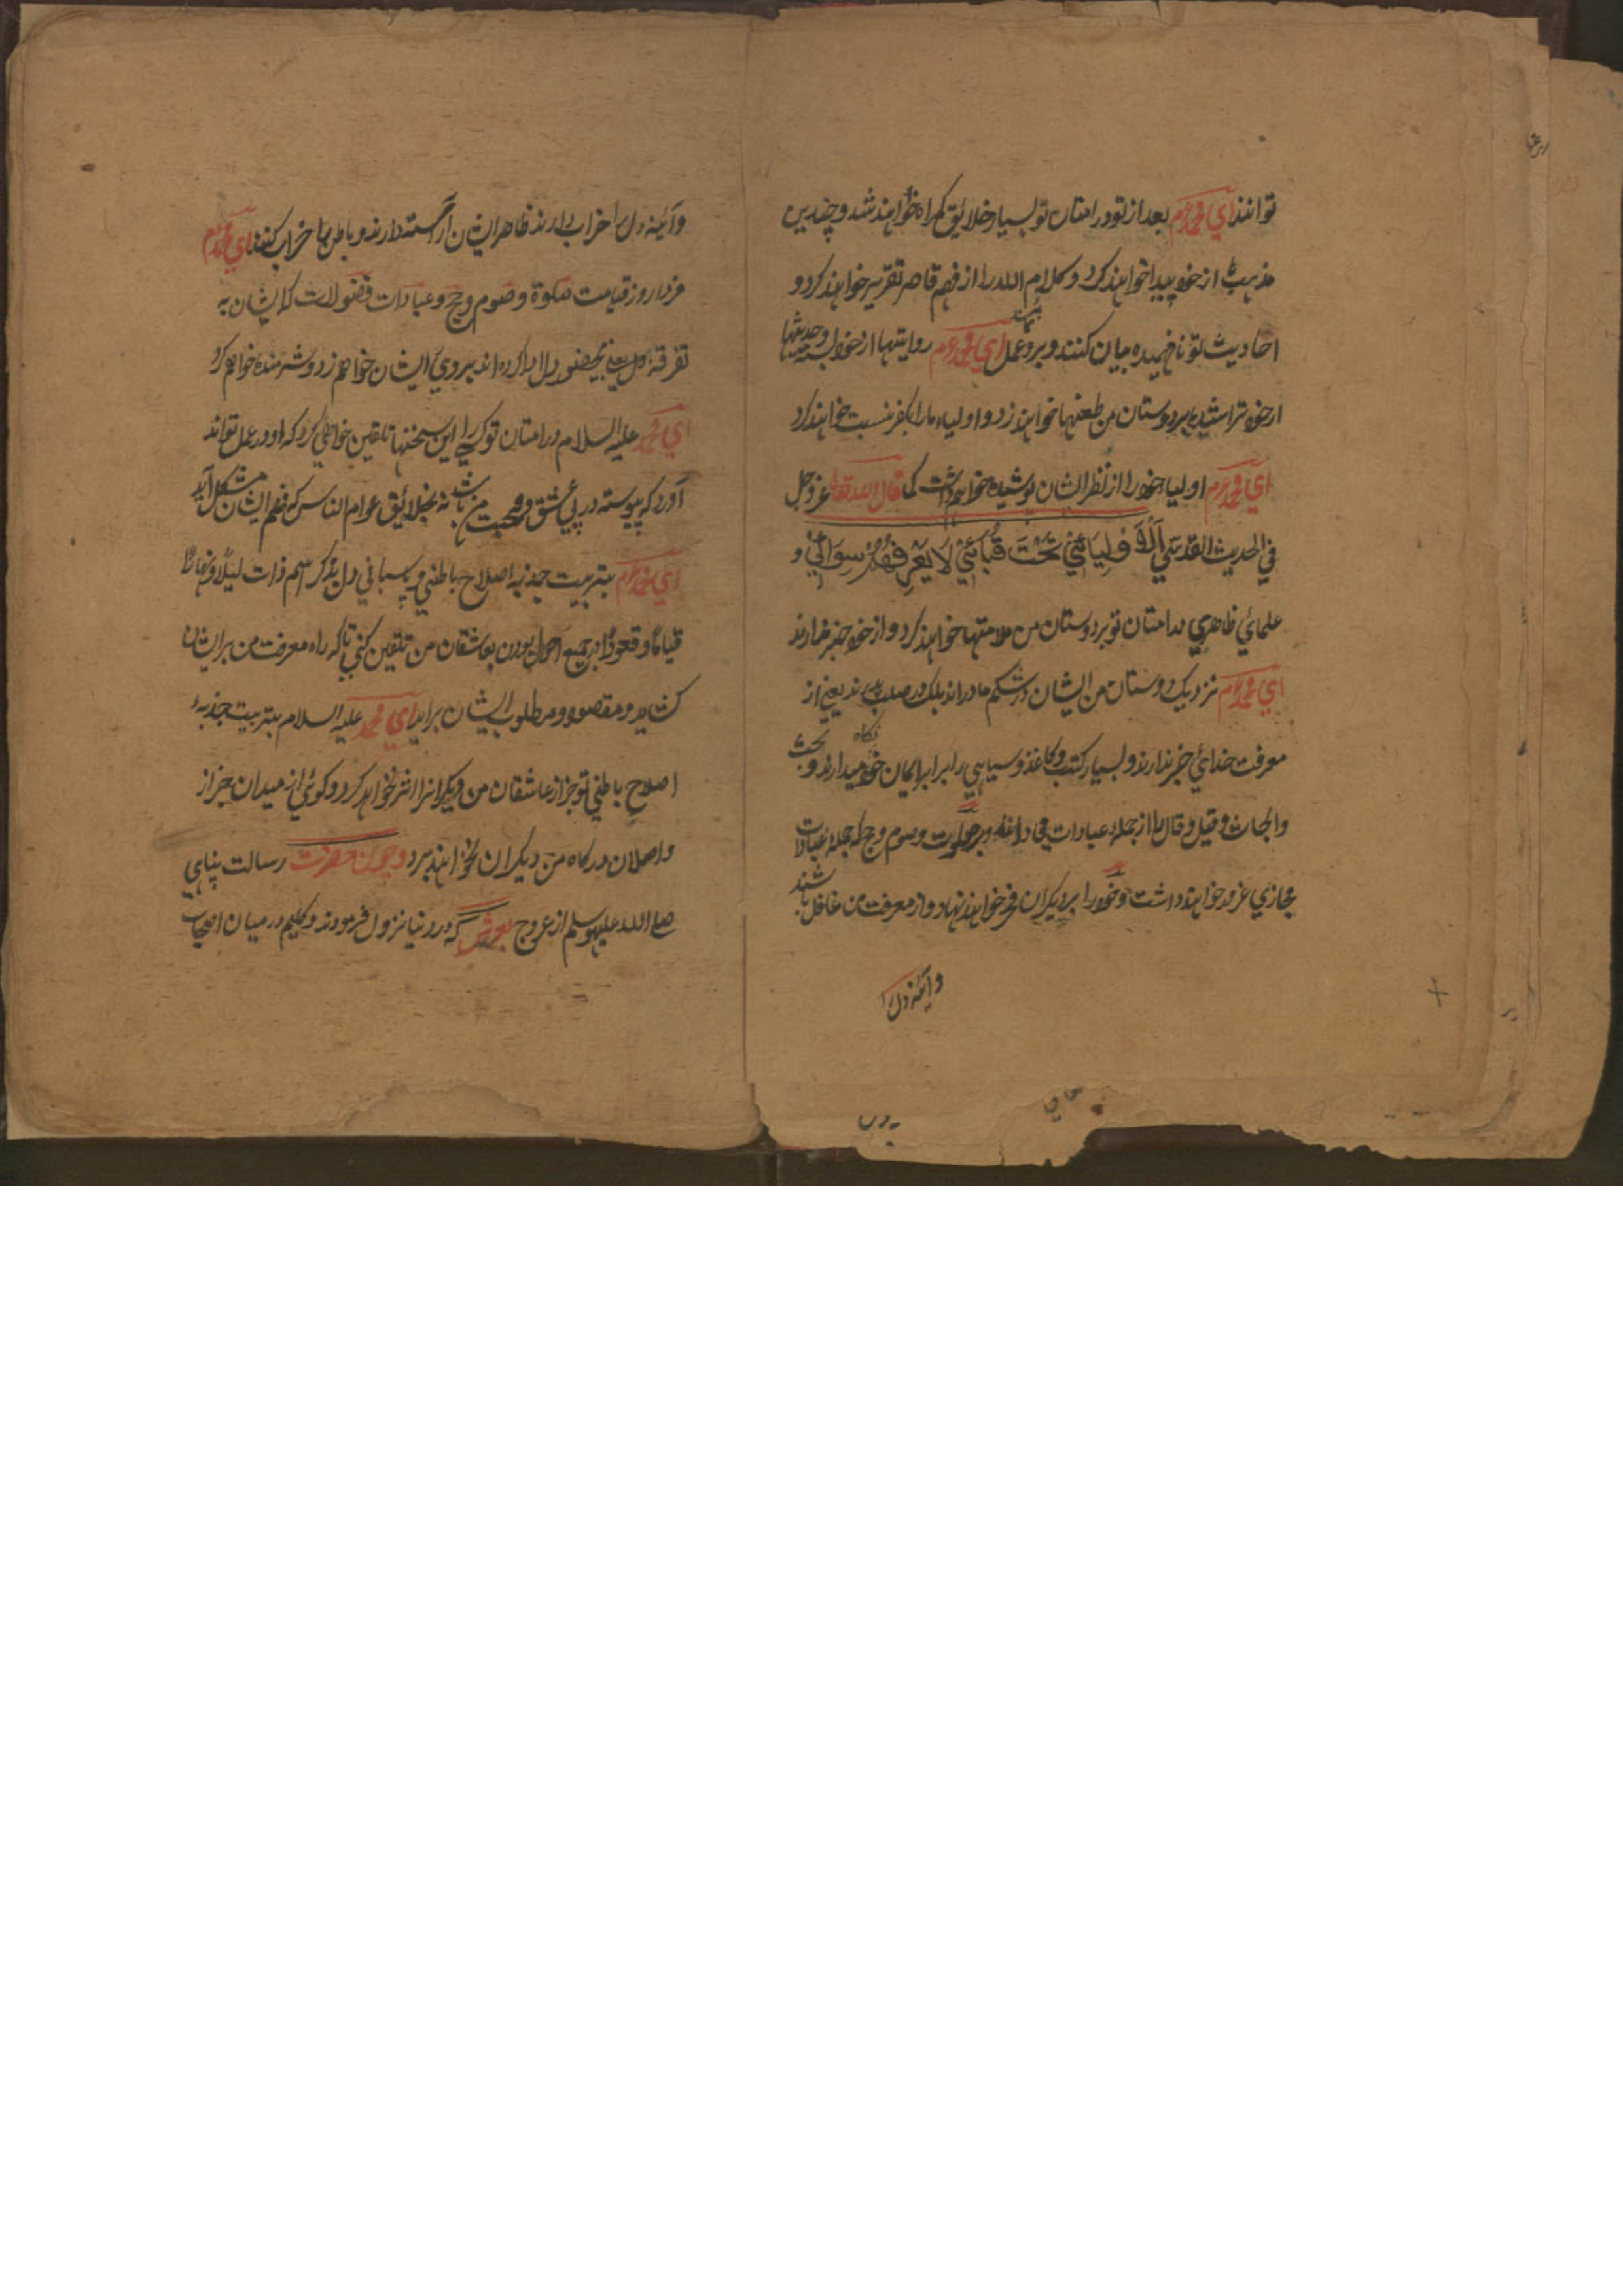 توانند ای محمدم بعد از تو در امتان تو بسیار خلائق گمراه خواهند شد و چندین
مذهبها از خود پیدا خواهند کرد و کلام الله را از فهم قاصر تقریر خواهند کرد و
احادیث تو نافهمیده بیان کنند و برو عمل ای محمدم روایتها از خود و حدیثها
از خود تراشیده بر دوستان من طعنها خواهند زد و اولیاء ما را بکفر نسبت خواهند کرد
ای محمدم اولیا خود را از نظر ایشان پوشیده خواهم داشت کما قال الله تعالی عزوجل
في الحديث القدسي تَحْتَ قَبَائِي لَا يَعْرِفُهُمْ سِوَائِي و
علمائی ظاهری در امتان تو بر دوستان من ملامتها خواهند کرد و از خود خبر ندارند
ای محمدم نزدیک دوستان من ایشان در شکم مادر اند بلک در صلب پدر اند یعنی از
معرفت خدائی خبر ندارند و بسیار کتب و کاغذ و سیاهی را برابر ایمان خود نگاه میدارند و بحث
و ابحاث و قیل و قال را از جمله عبادات می دانند و بر صلوت و صوم و حج که جمله عبادات
مجازی غره خواهند داشت و خود را بر دیگران فخر خواهند نهاد و از معرفت من غافل باشند
وآئینه دل را
وآئینه دل را خراب دارند ظاهر ایشان آراسته دارند و باطن‌ها خراب کنند ای محمدم
فردا روز قیامت صلوة و صوم و حج و عبادات فضولات که ایشان به
تفرقه دل یعنی بیحضور دل ادا کرده اند بروی ایشان خواهم زد و شرمنده خواهم کرد
ای محمد علیه السلام در امتان تو کسی را این سخنها تلقین خواهی کرد که او در عمل تواند
آورد که پیوسته در پی عشق و محبت من باشد نه بخلائق عوام الناس که فهم ایشان مشکل آید
ای محمدم بتربیت جذبه اصلاح باطنی و پاسبانی دل بذکر اسم ذات لیلًا و نهارًا
قیامًا و قعودًا در جمیع احوال بودن بعاشقان من تلقین کنی تا که راه معرفت من بر ایشان
کشاید و مقصود و مطلوب ایشان برآید ای محمد علیه السلام بتربیت جذبهٔ
اصلاح باطنی تو جز از عاشقان من دیگرانرا اثر نخواهد کرد و گوئی از میدان جز از
واصلان درگاه من دیگران نخواهند برد و چون حضرت رسالت پناهی
صلی الله علیه وسلم از عروج بعرش گه در دنیا نزول فرمودند و گلیم در میان اصحاب